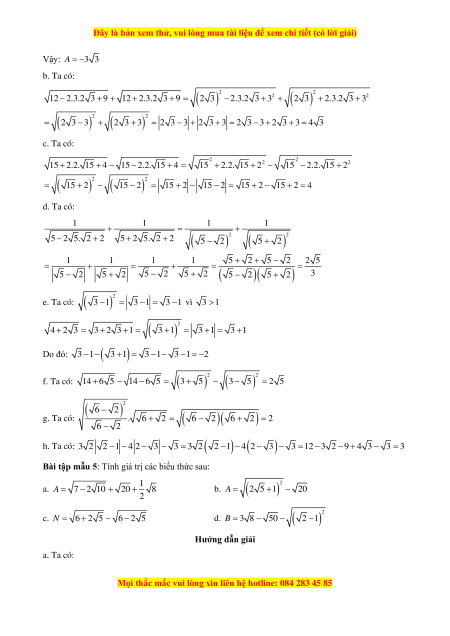 Đây là bản xem thử, vui lòng mua tài liệu để xem chi tiết (có lời giải)
Vậy: A = −3√3
b. Ta có:
√(12 − 2.3.2√3 + 9) + √(12 + 2.3.2√3 + 9) = √((2√3)² − 2.3.2√3 + 3²) + √((2√3)² + 2.3.2√3 + 3²)
= √((2√3 − 3)²) + √((2√3 + 3)²) = |2√3 − 3| + |2√3 + 3| = 2√3 − 3 + 2√3 + 3 = 4√3
c. Ta có:
√(15 + 2.2.√15 + 4) − √(15 − 2.2.√15 + 4) = √(√15² + 2.2.√15 + 2²) − √(√15² − 2.2.√15 + 2²)
= √((√15 + 2)²) − √((√15 − 2)²) = |√15 + 2| − |√15 − 2| = √15 + 2 − √15 + 2 = 4
d. Ta có:
1/√(5 − 2√5.√2 + 2) + 1/√(5 + 2√5.√2 + 2) = 1/√((√5 − √2)²) + 1/√((√5 + √2)²)
= 1/|√5 − √2| + 1/|√5 + √2| = 1/(√5 − √2) + 1/(√5 + √2) = (√5 + √2 + √5 − √2)/((√5 − √2)(√5 + √2)) = 2√5/3
e. Ta có: √((√3 − 1)²) = |√3 − 1| = √3 − 1 vì √3 > 1
√(4 + 2√3) = √(3 + 2√3 + 1) = √((√3 + 1)²) = |√3 + 1| = √3 + 1
Do đó: √3 − 1 − (√3 + 1) = √3 − 1 − √3 − 1 = −2
f. Ta có: √(14 + 6√5) − √(14 − 6√5) = √((3 + √5)²) − √((3 − √5)²) = 2√5
g. Ta có: √((√6 − √2)²/(√6 − √2)).√(√6 + √2) = √((√6 − √2)(√6 + √2)) = 2
h. Ta có: 3√2|√2 − 1| − 4|2 − √3| − √3 = 3√2(√2 − 1) − 4(2 − √3) − √3 = 12 − 3√2 − 9 + 4√3 − √3 = 3
Bài tập mẫu 5: Tính giá trị các biểu thức sau:
a. A = √(7 − 2√10) + √20 + 1/2 √8 b. A = √((2√5 + 1)²) − √20
c. N = √(6 + 2√5) − √(6 − 2√5) d. B = 3√8 − √50 − √((√2 − 1)²)
Hướng dẫn giải
a. Ta có:
Mọi thắc mắc vui lòng xin liên hệ hotline: 084 283 45 85